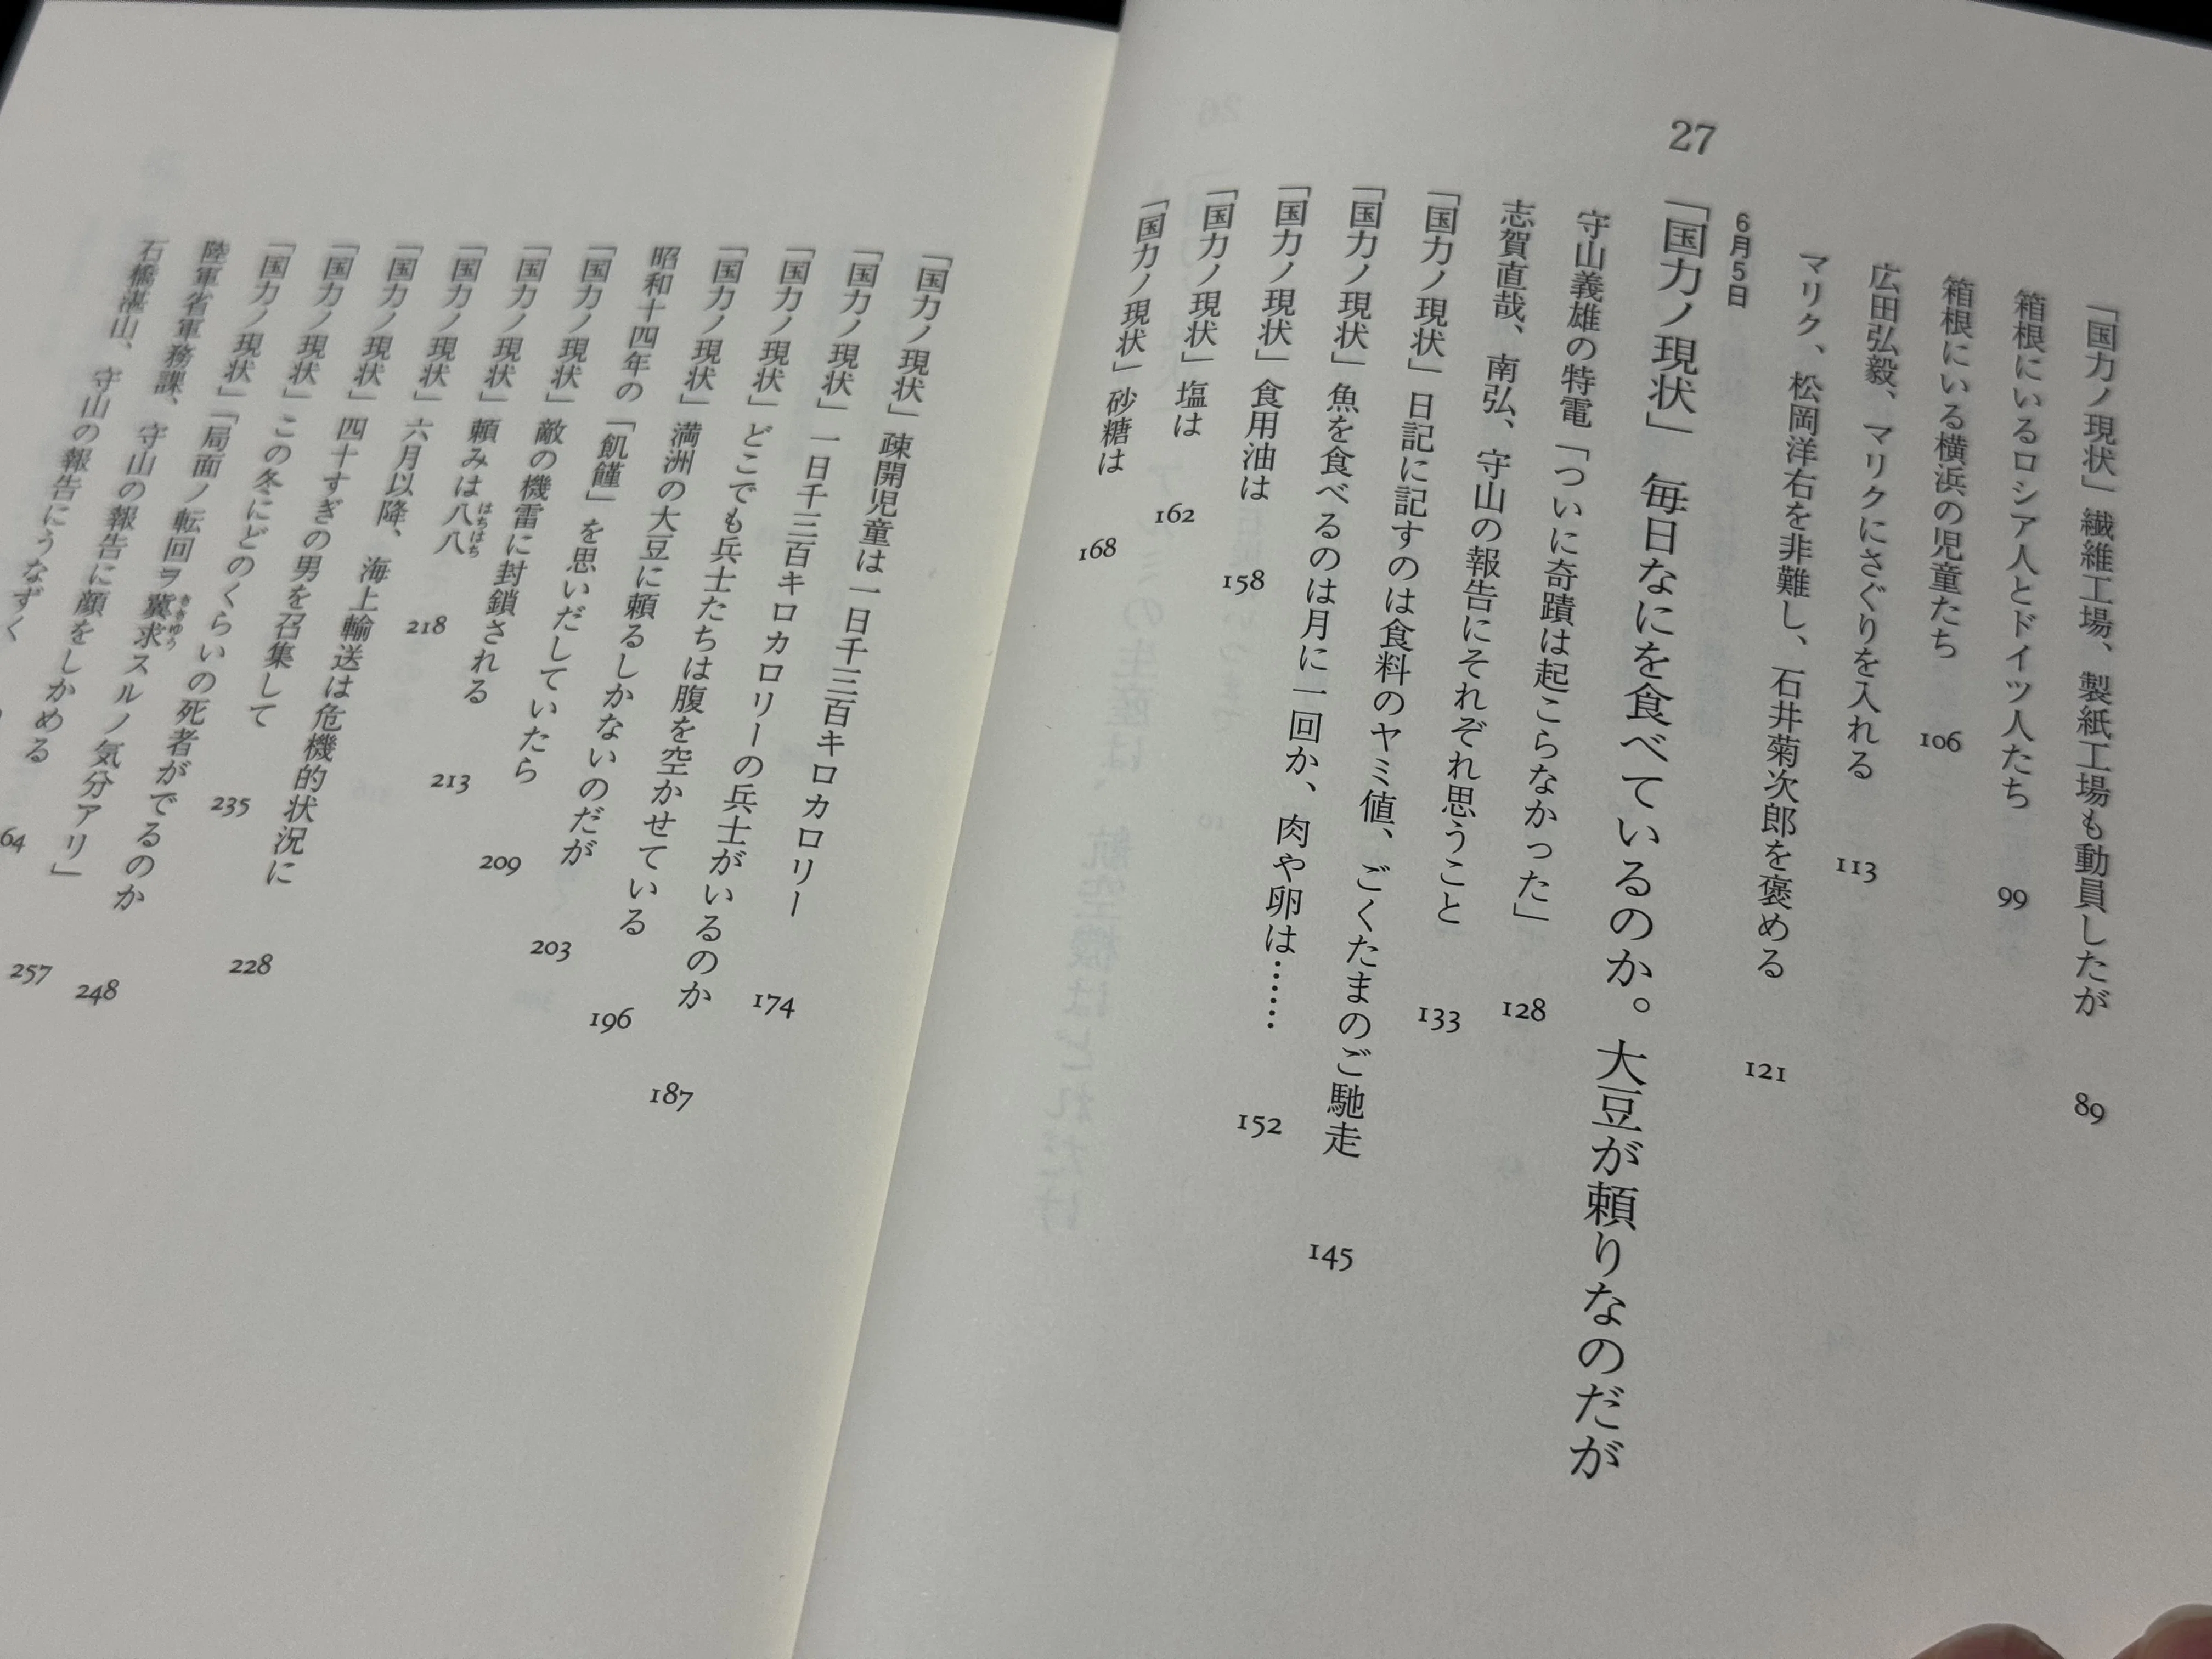 「国力ノ現状」繊維工場、製紙工場も動員したが 89
箱根にいるロシア人とドイツ人たち 99
箱根にいる横浜の児童たち 106
広田弘毅、マリクにさぐりを入れる 113
マリク、松岡洋右を非難し、石井菊次郎を褒める 121
6月5日
27 「国力ノ現状」 毎日なにを食べているのか。大豆が頼りなのだが
守山義雄の特電「ついに奇蹟は起こらなかった」 128
志賀直哉、南弘、守山の報告にそれぞれ思うこと 133
「国力ノ現状」日記に記すのは食料のヤミ値、ごくたまのご馳走 145
「国力ノ現状」魚を食べるのは月に一回か、肉や卵は…… 152
「国力ノ現状」食用油は 158
「国力ノ現状」塩は 162
「国力ノ現状」砂糖は 168
「国力ノ現状」疎開児童は一日千三百キロカロリー 174
「国力ノ現状」一日千三百キロカロリーの兵士がいるのか 187
「国力ノ現状」どこでも兵士たちは腹を空かせている 196
「国力ノ現状」満洲の大豆に頼るしかないのだが 203
昭和十四年の「飢饉」を思いだしていたら 209
「国力ノ現状」敵の機雷に封鎖される 213
はちはち
「国力ノ現状」頼みは八八 218
「国力ノ現状」六月以降、海上輸送は危機的状況に 228
「国力ノ現状」四十すぎの男を召集して 235
「国力ノ現状」この冬にどのくらいの死者がでるのか 248
ききゅう
「国力ノ現状」「局面ノ転回ヲ冀求スルノ気分アリ」 257
陸軍省軍務課、守山の報告に顔をしかめる
石橋湛山、守山の報告にうなずく